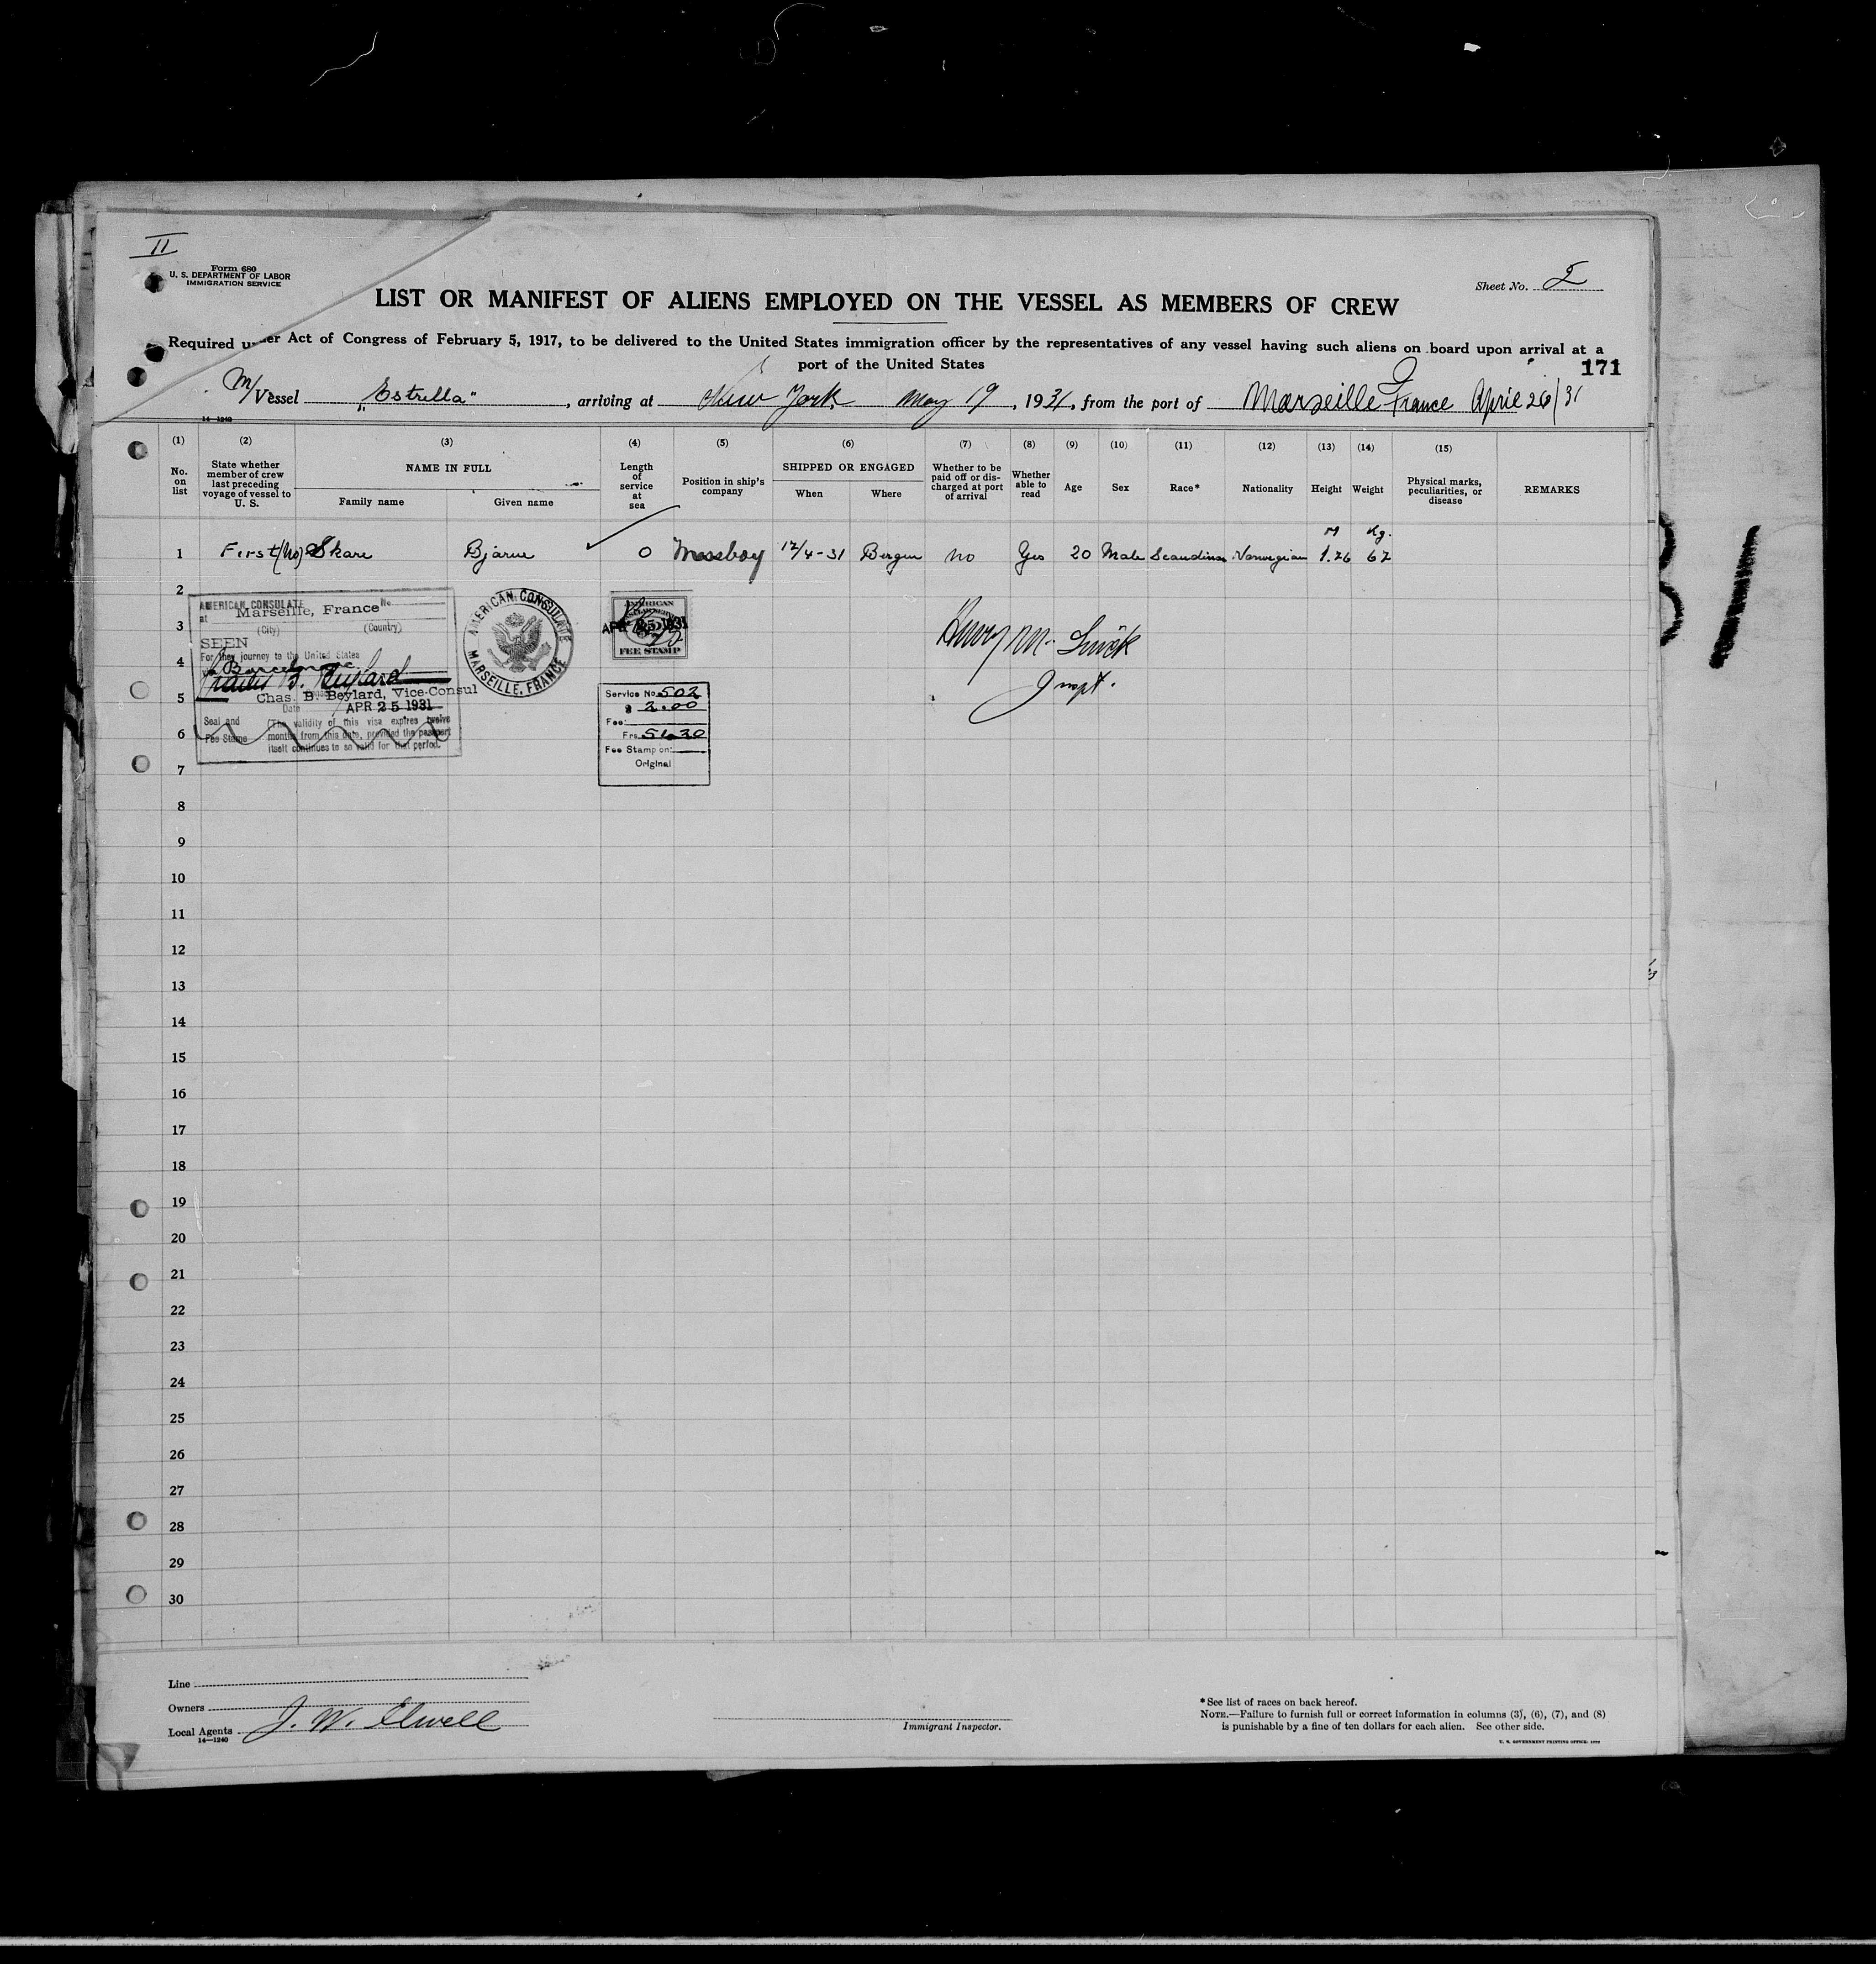 II
Form 680
U. S. DEPARTMENT OF LABOR
IMMIGRATION SERVICE
Sheet No. 2
LIST OR MANIFEST OF ALIENS EMPLOYED ON THE VESSEL AS MEMBERS OF CREW
Required under Act of Congress of February 5, 1917, to be delivered to the United States immigration officer by the representatives of any vessel having such aliens on board upon arrival at a
port of the United States
171
M/Vessel "Estrella", arriving at New York May 19, 1931, from the port of Marseille France April 26/31
14—1240
(1) (2) (3) (4) (5) (6) (7) (8) (9) (10) (11) (12) (13) (14) (15)
No. on list
State whether member of crew last preceding voyage of vessel to U. S.
NAME IN FULL
Family name
Given name
Length of service at sea
Position in ship's company
SHIPPED OR ENGAGED
When
Where
Whether to be paid off or discharged at port of arrival
Whether able to read
Age
Sex
Race*
Nationality
Height
Weight
Physical marks, peculiarities, or disease
REMARKS
M Kg.
1 First (No) Skare Bjarne 0 Messboy 12/4-31 Bergen no Yes 20 Male Scandinav Norwegian 1.76 67
2
3
4
5
6
7
8
9
10
11
12
13
14
15
16
17
18
19
20
21
22
23
24
25
26
27
28
29
30
AMERICAN CONSULATE No
at Marseille, France
(City) (Country)
SEEN
For they journey to the United States
via Barcelona
Charles B. Beylard
Chas. B. Beylard, Vice-Consul
Date APR 25 1931
Seal and Fee Stamp
(The validity of this visa expires twelve
months from this date, provided the passport
itself continues to be valid for that period.
AMERICAN CONSULATE
MARSEILLE, FRANCE
AMERICAN
APR 25 1931
FEE STAMP
Service No. 502
$ 2.00
Fee:
Frs 51.20
Fee Stamp on:
Original
Inspt.
Line
Owners
Local Agents J. W. Elwell
14—1240
Immigrant Inspector.
*See list of races on back hereof.
NOTE.—Failure to furnish full or correct information in columns (3), (6), (7), and (8)
is punishable by a fine of ten dollars for each alien. See other side.